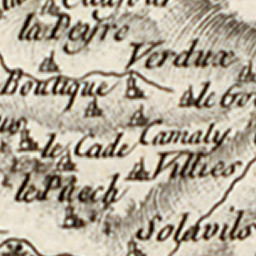 la Peyro
Verdux
Boutique
le Cade
Camaly
Villies
le Puech
Solavils